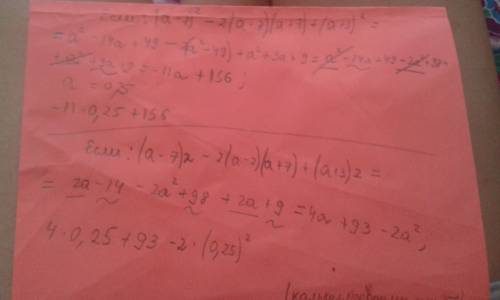 Если: (a-7)² - 2(a-7)(a+7) + (a+3)² =
= a² - 14a + 49 - 2(a² - 49) + a² + 9a + 9 = a² - 14a + 49 - 2a² + 98
+ a² + 9a + 9 = -11a + 156;
a = 0,25
-11·0,25 + 156
Если: (a-7)2 - 2(a-7)(a+7) + (a+3)2 =
= 2a - 14 - 2a² + 98 + 2a + 9 = 4a + 93 - 2a²;
4·0,25 + 93 - 2·(0,25)²